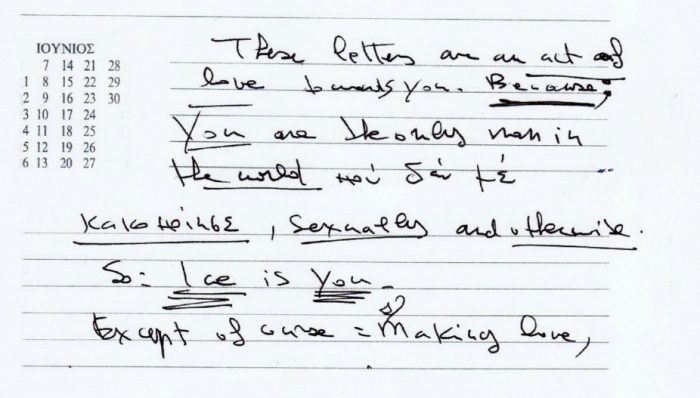 ΙΟΥΝΙΟΣ
7 14 21 28
1 8 15 22 29
2 9 16 23 30
3 10 17 24
4 11 18 25
5 12 19 26
6 13 20 27
These letters are an act of
love towards you. Because;
You are the only man in
the world πού δέν μέ
κακοποίησε, sexually and otherwise.
So: Ice is you.
Except of course = making love,